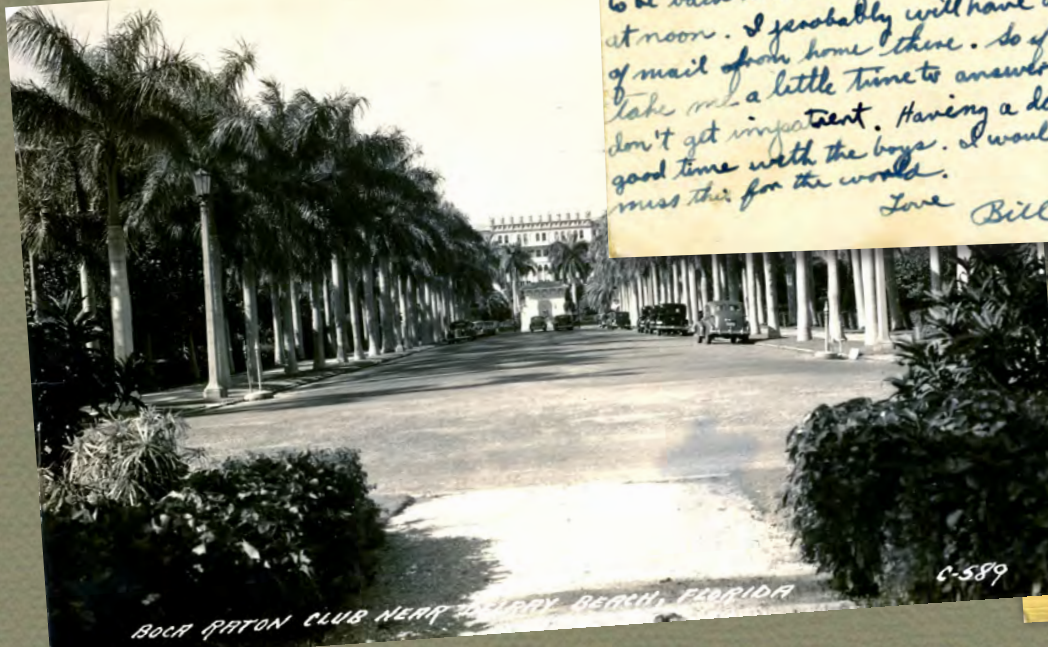 at noon. I probably will have
of mail from home there. So if
take me a little time to answer
don't get impatient. Having a
good time with the boys. I would
miss this for the world.
Love Bill
BOCA RATON CLUB NEAR DELRAY BEACH, FLORIDA
C-589